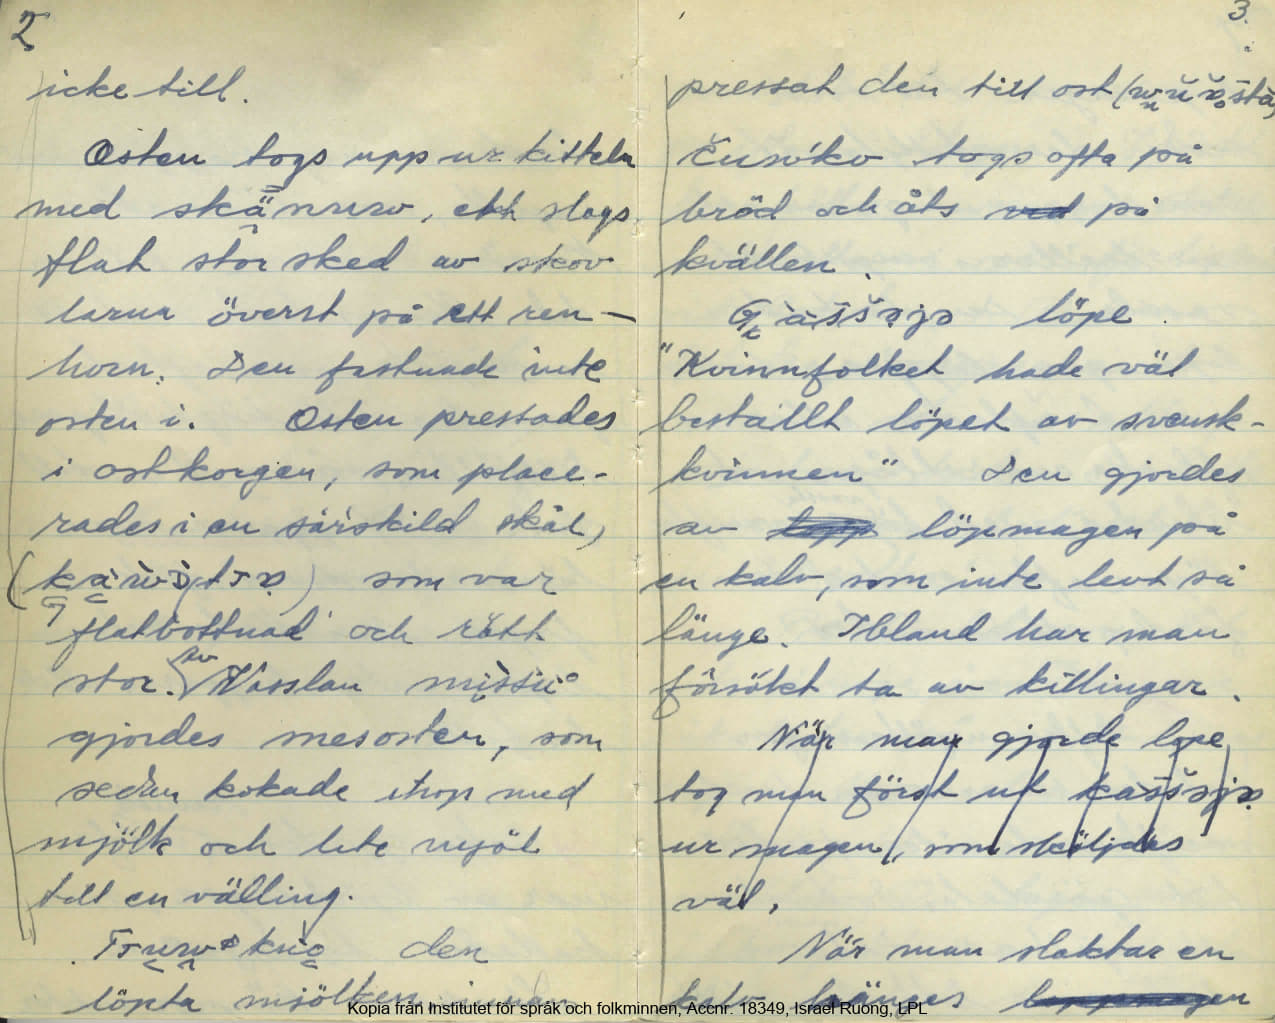 2
icke till.
Osten togs upp ur kitteln
med skänuw, ett slags
flat stor sked av skov
larna överst på ett ren-
horn. Den fastnade inte
osten i. Osten pressades
i ostkorgen, som place-
rades i en särskild skål,
som var
flatbottnad och rätt
stor. av Vasslan
gjordes mesosten, som
sedan kokade ihop med
mjölk och lite mjöl
till en välling.
den
löpta mjölken
3.
pressat den till ost
togs ofta på
bröd och åts ved på
kvällen.
löpe.
"Kvinnfolket hade väl
beställt löpet av svensk-
kvinnen" Den gjordes
av löpmagen på
en kalv, som inte levt så
länge. Ibland har man
försökt ta av killingar.
När man gjorde löpe
tog man först ut
ur magen, som sköljdes
väl,
När man slaktar en
kalv hänges
Kopia från Institutet för språk och folkminnen, Accnr. 18349, Israel Ruong, LPL